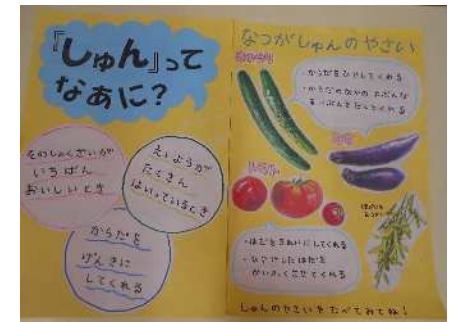 『しゅん』って
なあに?
そのしょくざいが
いちばん
おいしいとき
えいようが
たくさん
はいっているとき
からだを
げんきに
してくれる
なつがしゅんのやさい
きゅうり
・からだをひやしてくれる
・からだのなかの
なす
トマト
・はだをきれいにしてくれる
・ひやけしたはだを
かいふくさせてくれる
しゅんのやさいをたべてみてね!